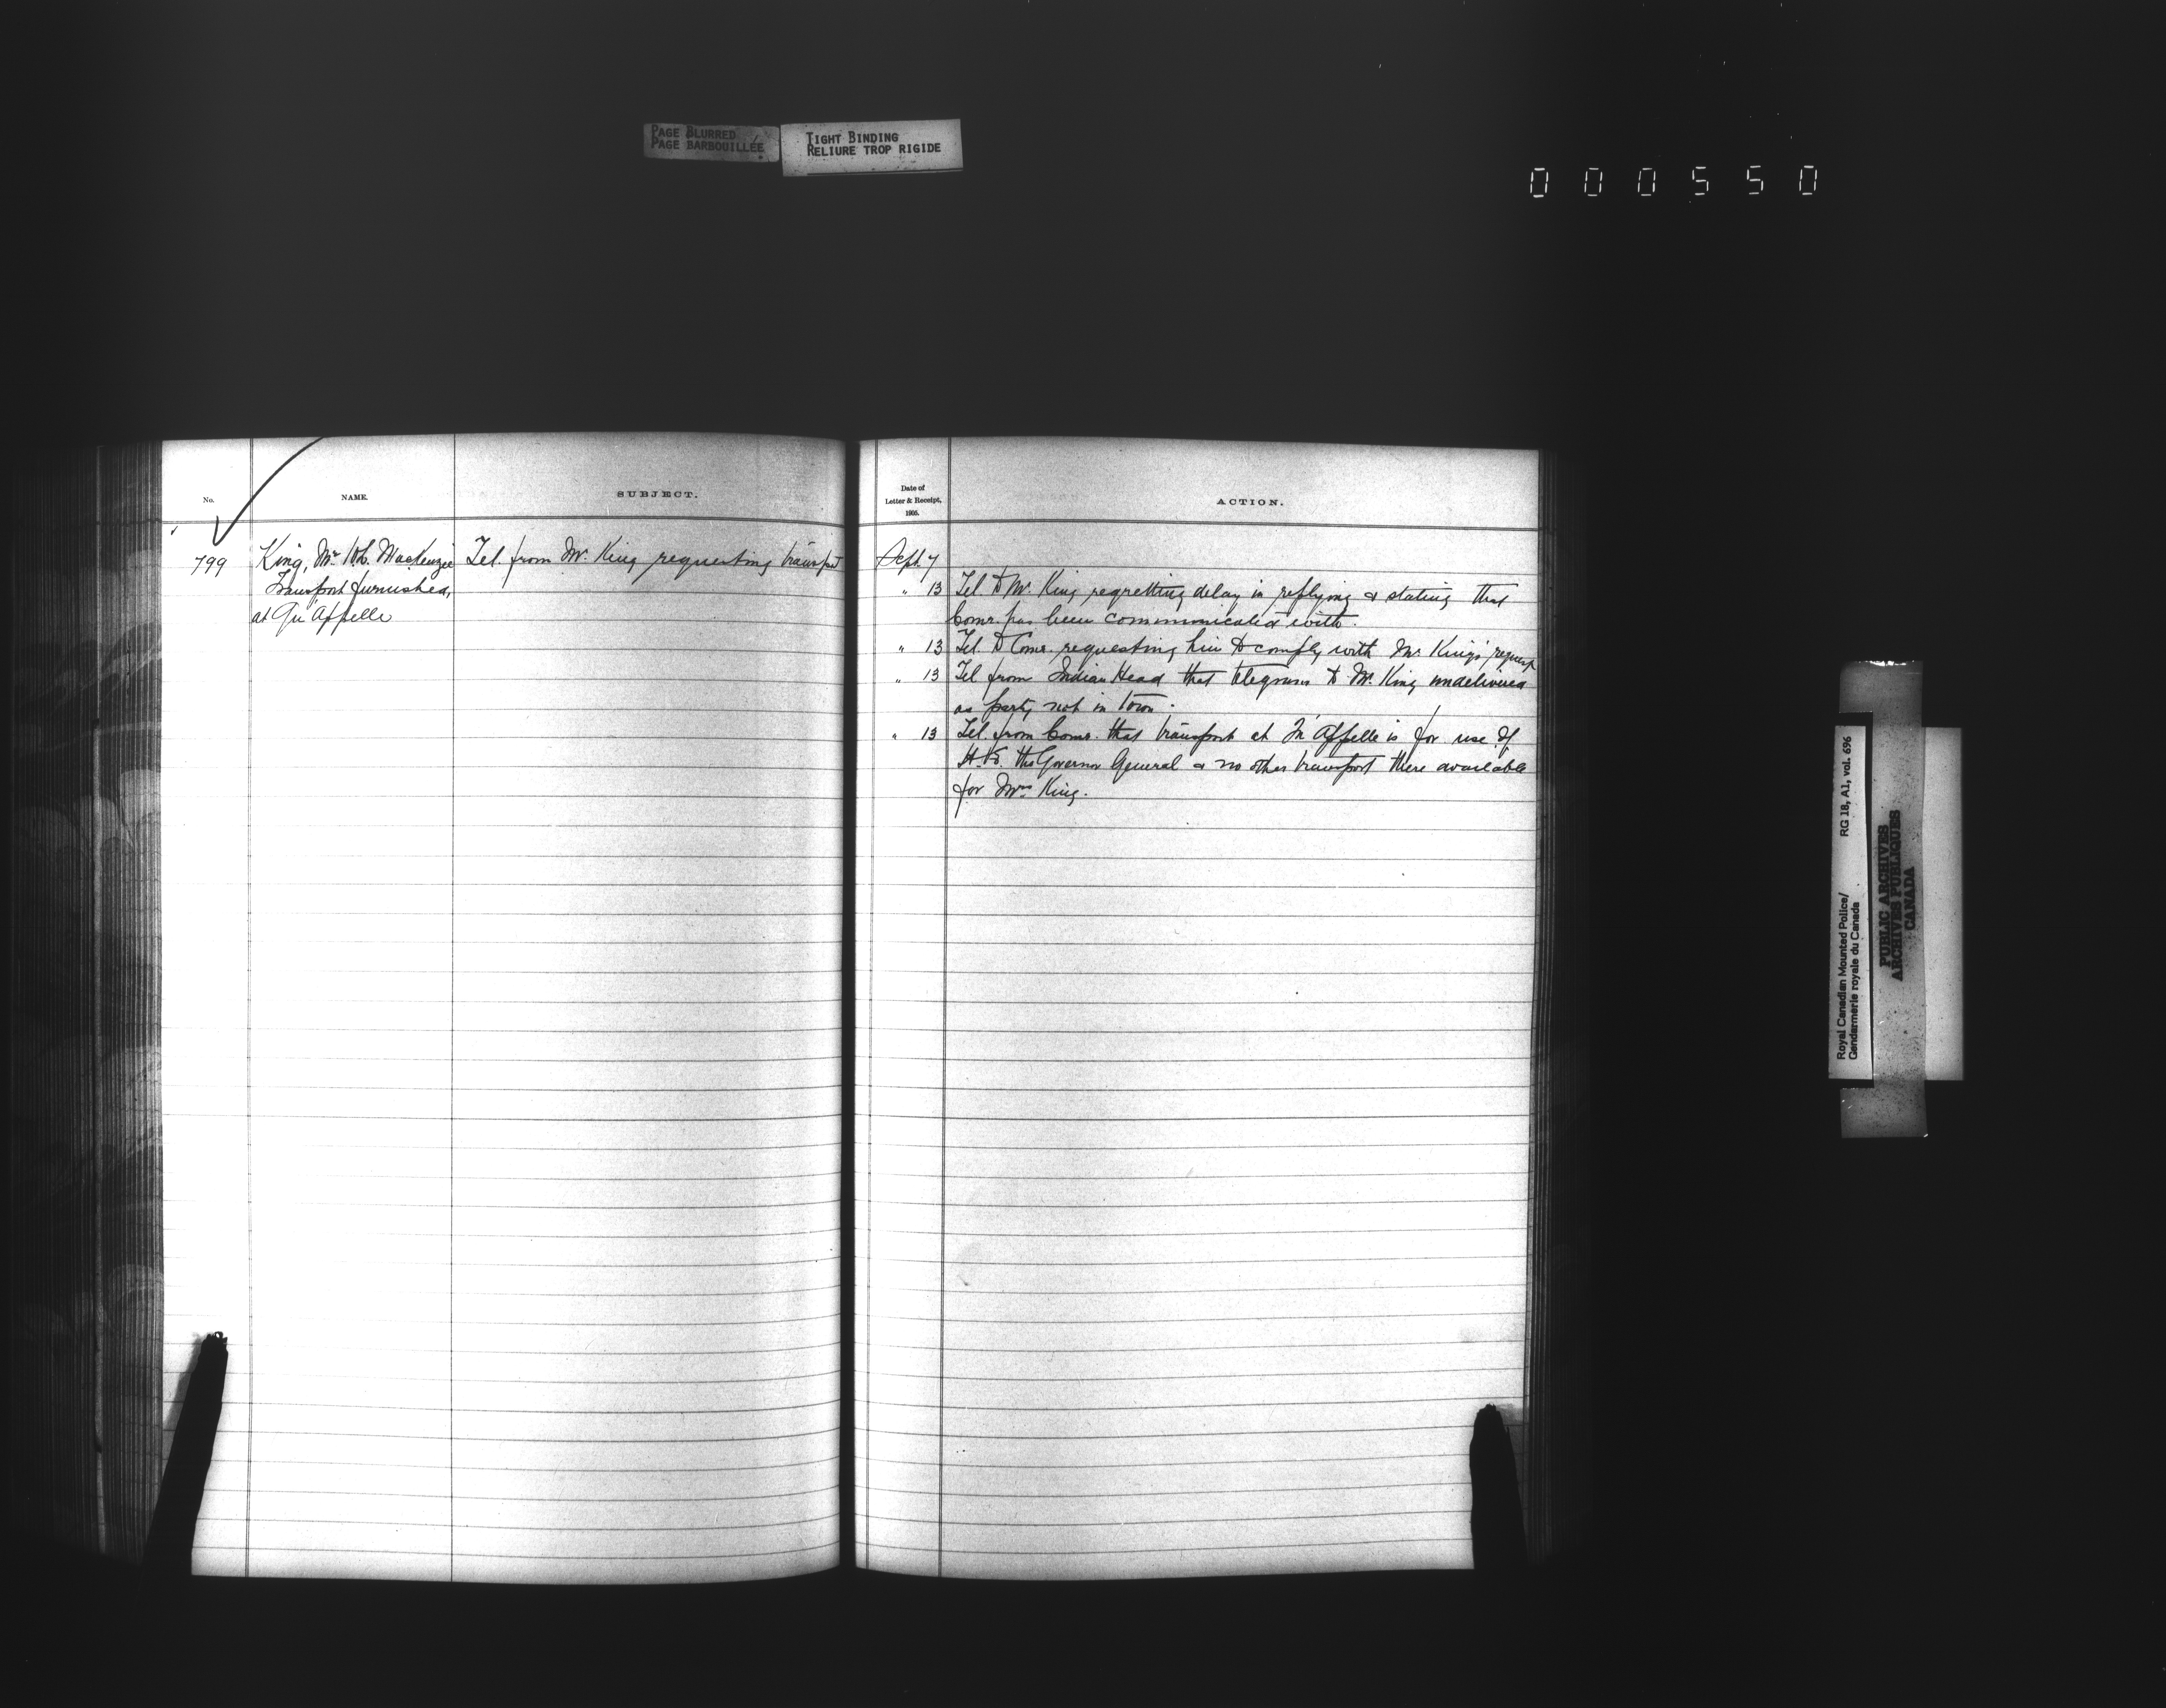 PAGE BLURRED
PAGE BARBOUILLÉE
TIGHT BINDING
RELIURE TROP RIGIDE
000550
No.
NAME.
SUBJECT.
799
King, Mr. W.L. MacKenzie
Transport furnished,
at Qu'Appelle
Tel. from Mr. King requesting transport
Date of
Letter & Receipt,
1905.
ACTION.
Sept. 7
" 13 Tel to Mr. King regretting delay in replying & stating that
Comr. has been communicated with.
" 13 Tel. to Comr. requesting him to comply with Mr. King's request
" 13 Tel from Indian Head that telegram to Mr. King undelivered
as party not in town.
" 13 Tel. from Comr. that transport at Qu'Appelle is for use of
H.E. the Governor General & no other transport there available
for Mr. King.
Royal Canadian Mounted Police/ RG 18, A1, vol. 696
Gendarmerie royale du Canada
PUBLIC ARCHIVES
ARCHIVES PUBLIQUES
CANADA